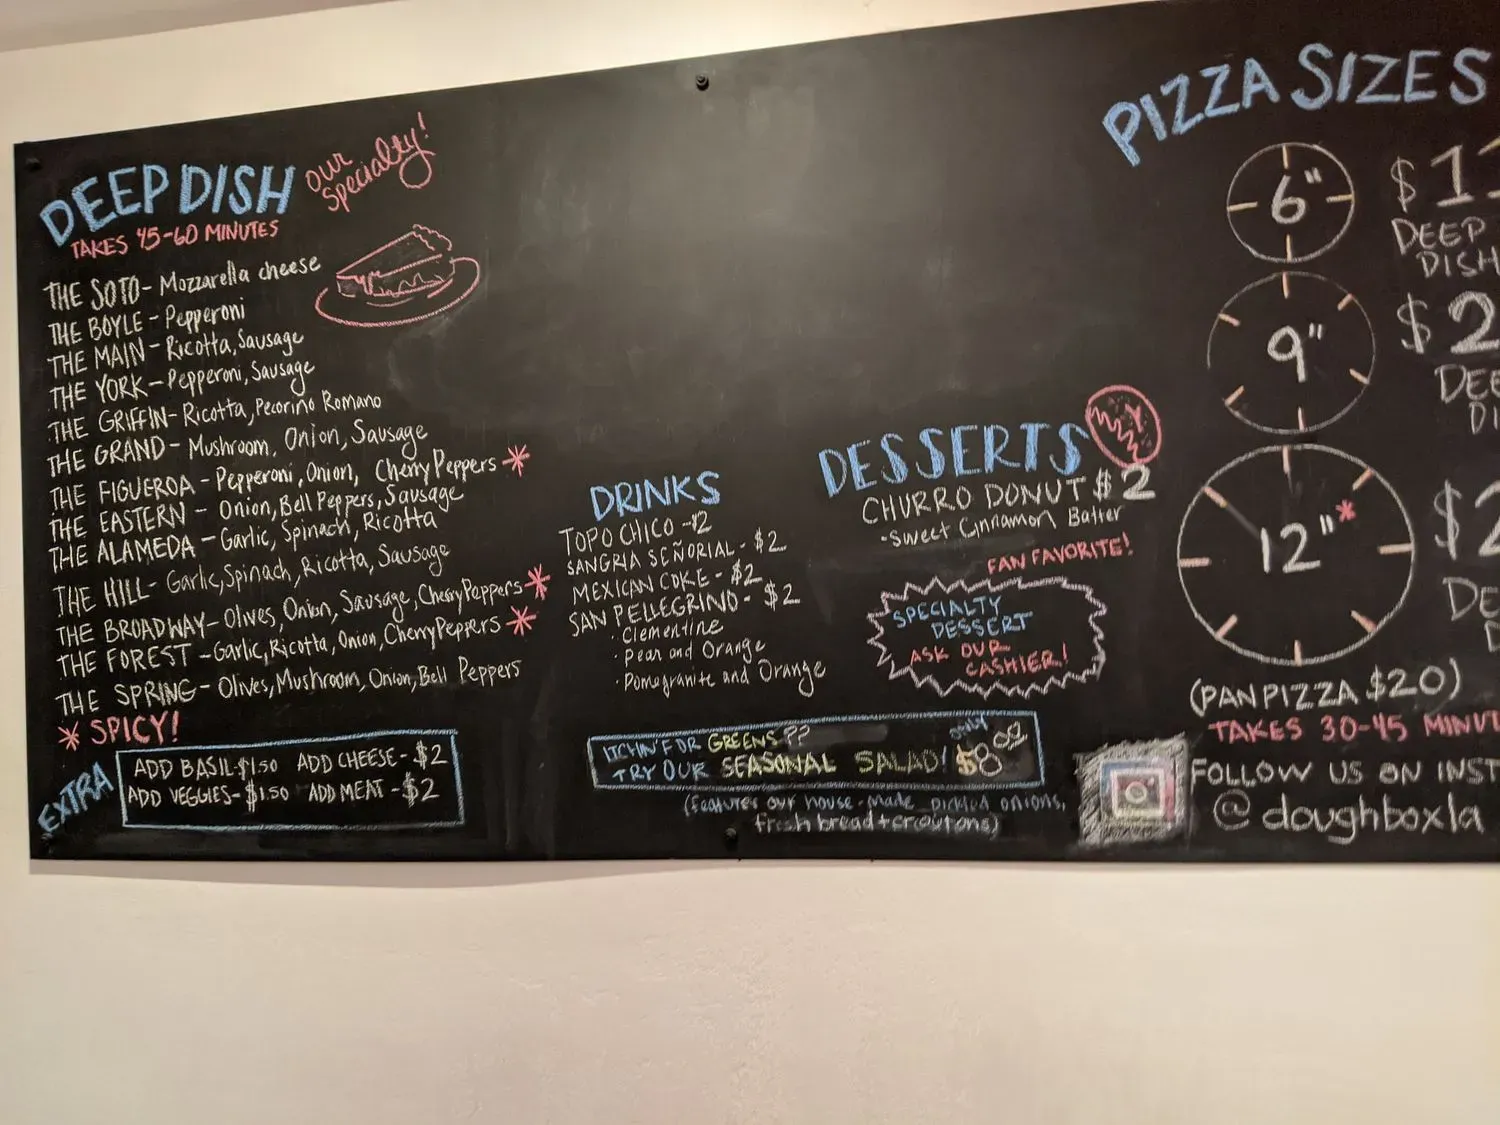 DEEP DISH
our
Specialty!
TAKES 45-60 MINUTES
THE SOTO - Mozzarella cheese
THE BOYLE - Pepperoni
THE MAIN - Ricotta, Sausage
THE YORK - Pepperoni, Sausage
THE GRIFFIN - Ricotta, Pecorino Romano
THE GRAND - Mushroom, Onion, Sausage
THE FIGUEROA - Pepperoni, Onion, Cherry Peppers *
THE EASTERN - Onion, Bell Peppers, Sausage
THE ALAMEDA - Garlic, Spinach, Ricotta
THE HILL - Garlic, Spinach, Ricotta, Sausage
THE BROADWAY - Olives, Onion, Sausage, Cherry Peppers *
THE FOREST - Garlic, Ricotta, Onion, Cherry Peppers *
THE SPRING - Olives, Mushroom, Onion, Bell Peppers
* SPICY!
EXTRA
ADD BASIL - $1.50 ADD CHEESE - $2
ADD VEGGIES - $1.50 ADD MEAT - $2
DRINKS
TOPO CHICO - $2
SANGRIA SEÑORIAL - $2
MEXICAN COKE - $2
SAN PELLEGRINO - $2
· Clementine
· Pear and Orange
· Pomegranite and Orange
DESSERTS
CHURRO DONUT $2
· Sweet Cinnamon Batter
FAN FAVORITE!
SPECIALTY
DESSERT
ASK OUR
CASHIER!
ITCHIN' FOR GREENS??
TRY OUR SEASONAL SALAD! only $8.00
(features our house-made pickled onions,
fresh bread + croutons)
PIZZA SIZES
6" $11
DEEP
DISH
9" $2
DEE
DI
12"* $2
DE
D
(PAN PIZZA $20)
TAKES 30-45 MINUT
FOLLOW US ON INST
@doughboxla